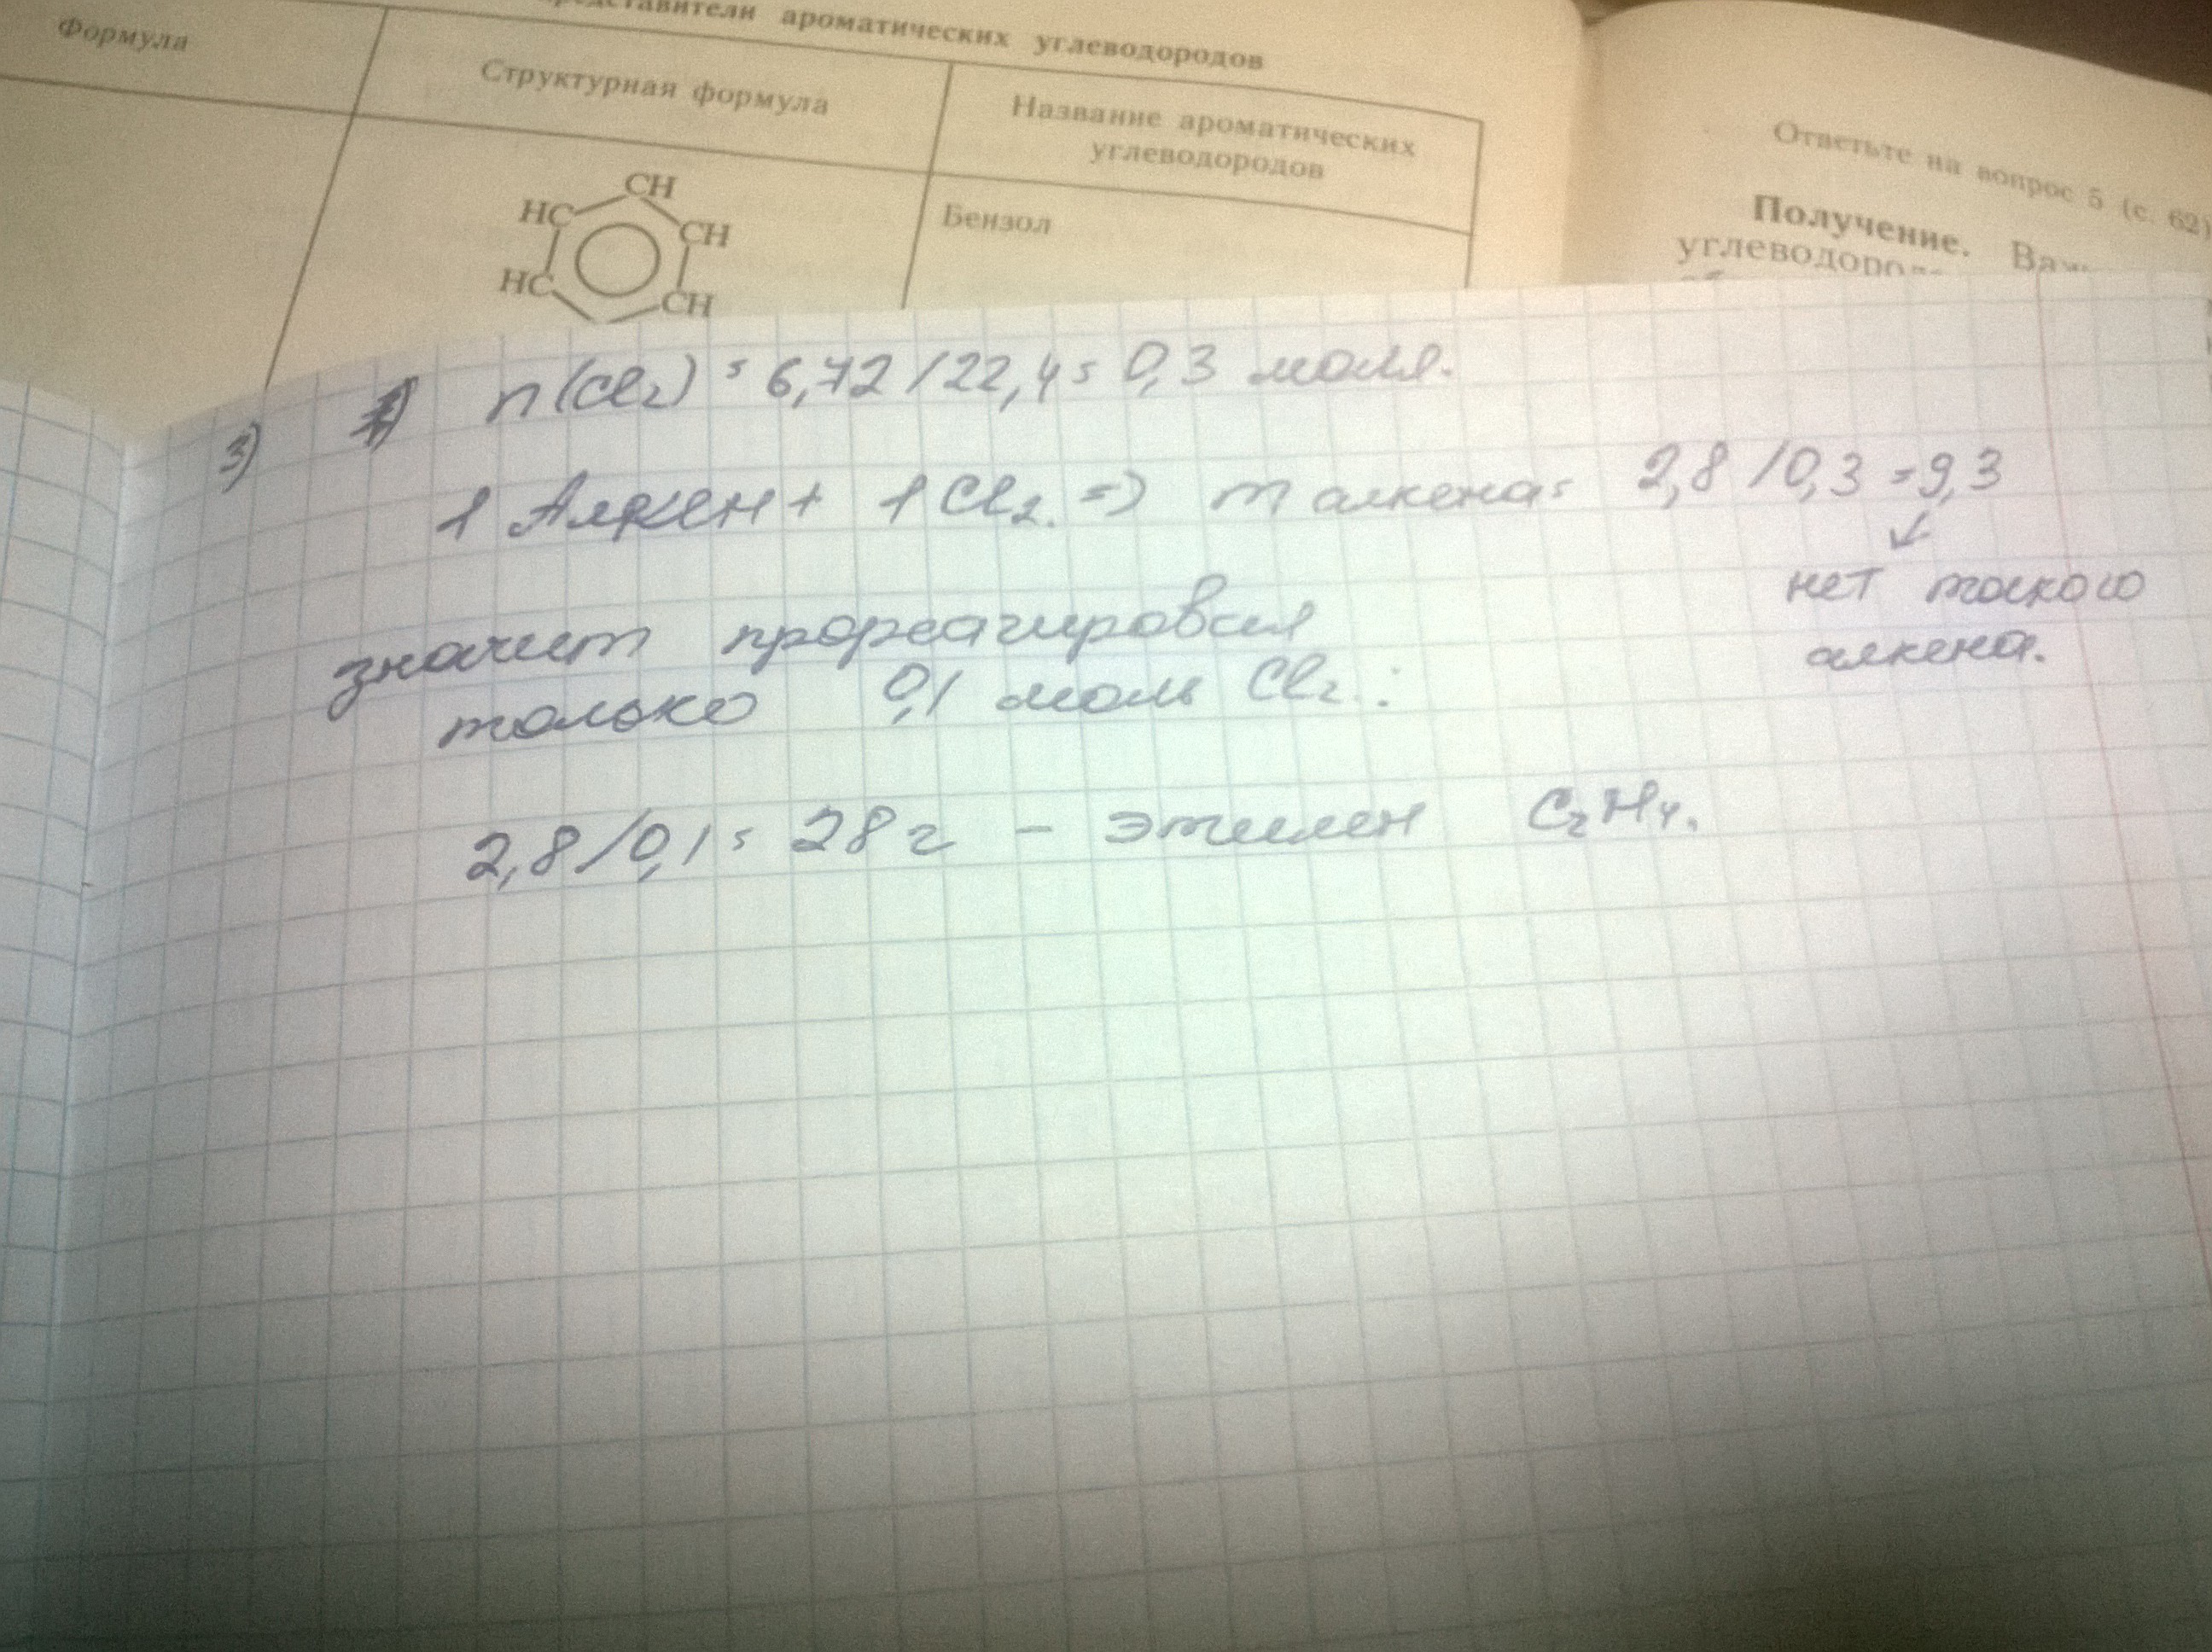 ароматических углеводородов
Формула
Структурная формула
Название ароматических
углеводородов
CH
HC
CH
HC
CH
Бензол
Ответьте на вопрос 5 (с. 62)
Получение.
углеводород
3) n(Cl₂) = 6,72 / 22,4 = 0,3 моля.
1 Алкен + 1 Cl₂. => m алкена = 2,8 / 0,3 = 9,3
↙
нет такого
алкена.
значит прореагировал
только 0,1 моль Cl₂.:
2,8 / 0,1 = 28 г – этилен C₂H₄.